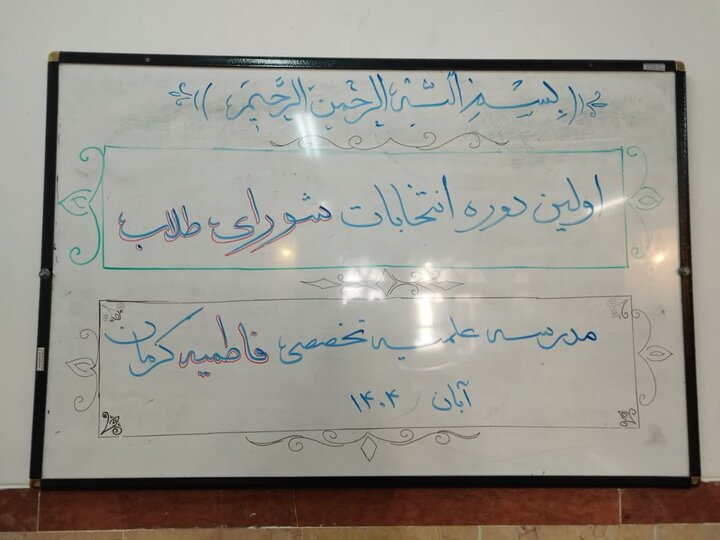 بِسْمِ اللهِ الرَّحْمنِ الرَّحیمِ
اولین دوره انتخابات شورای طلاب
مدرسه علمیه تخصصی فاطمیه کرمان
آبان ۱۴۰۴